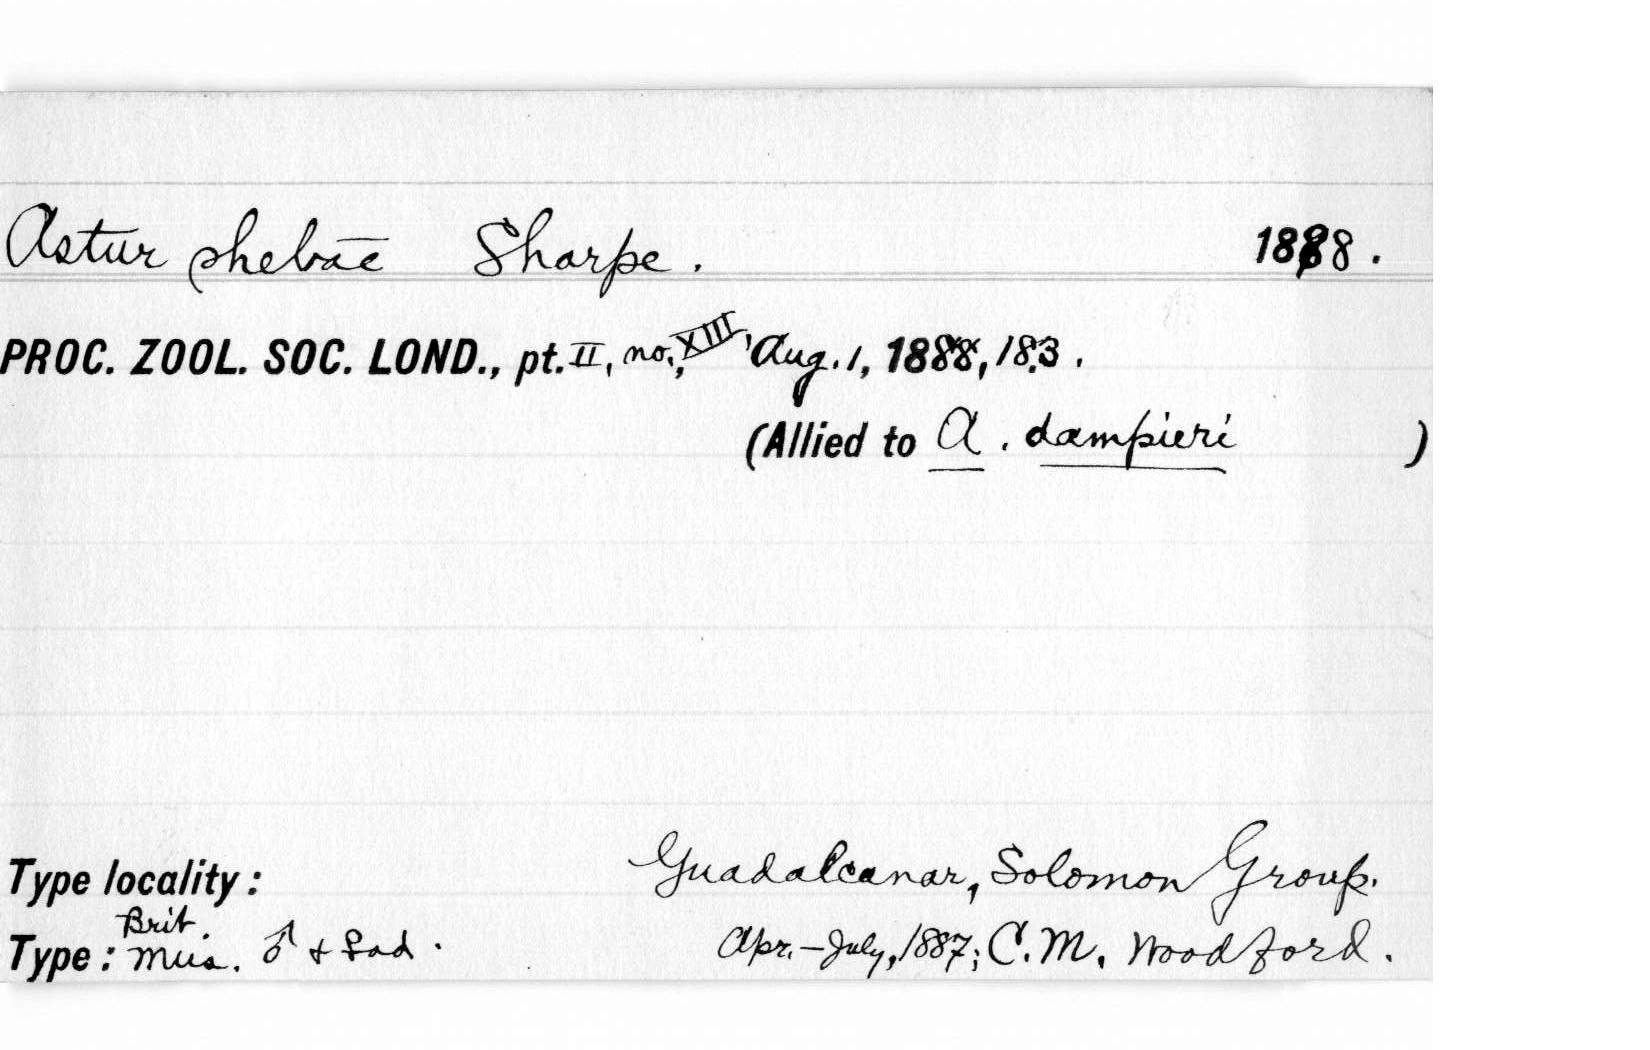 Astur shebae Sharpe. 1888.
PROC. ZOOL. SOC. LOND., pt. II, no. XIII, Aug. 1, 1888, 183.
(Allied to A. dampieri )
Type locality: Guadalcanar, Solomon Group.
Type: Brit. Mus. ♂ + ♀ ad. Apr.-July, 1887; C.M. Woodford.